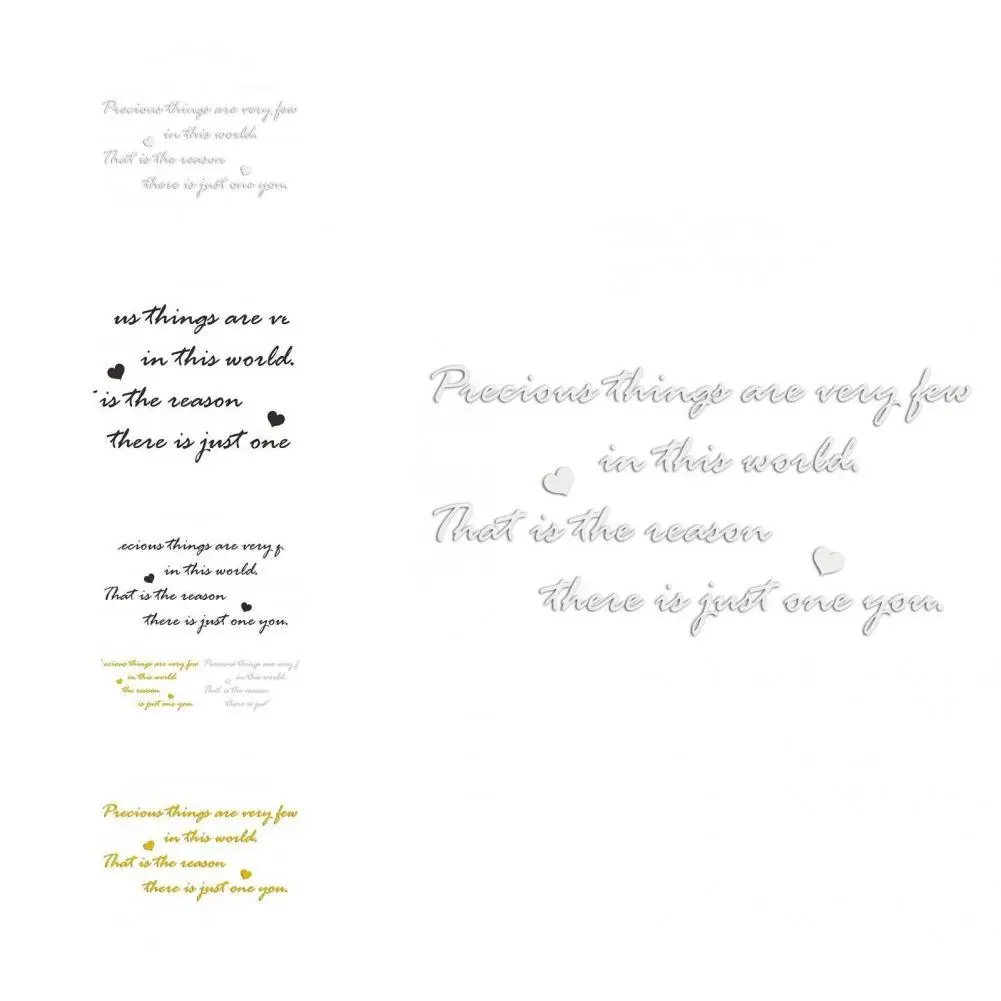 Precious things are very few
in this world.
That is the reason
there is just one you.
us things are ve
in this world.
is the reason
there is just one
ecious things are very f
in this world.
That is the reason
there is just one you.
ecious things are very few
in this world.
the reason
is just one you.
Precious things are very f
in this world.
That is the reason
there is just
Precious things are very few
in this world.
That is the reason
there is just one you.
Precious things are very few
in this world.
That is the reason
there is just one you.